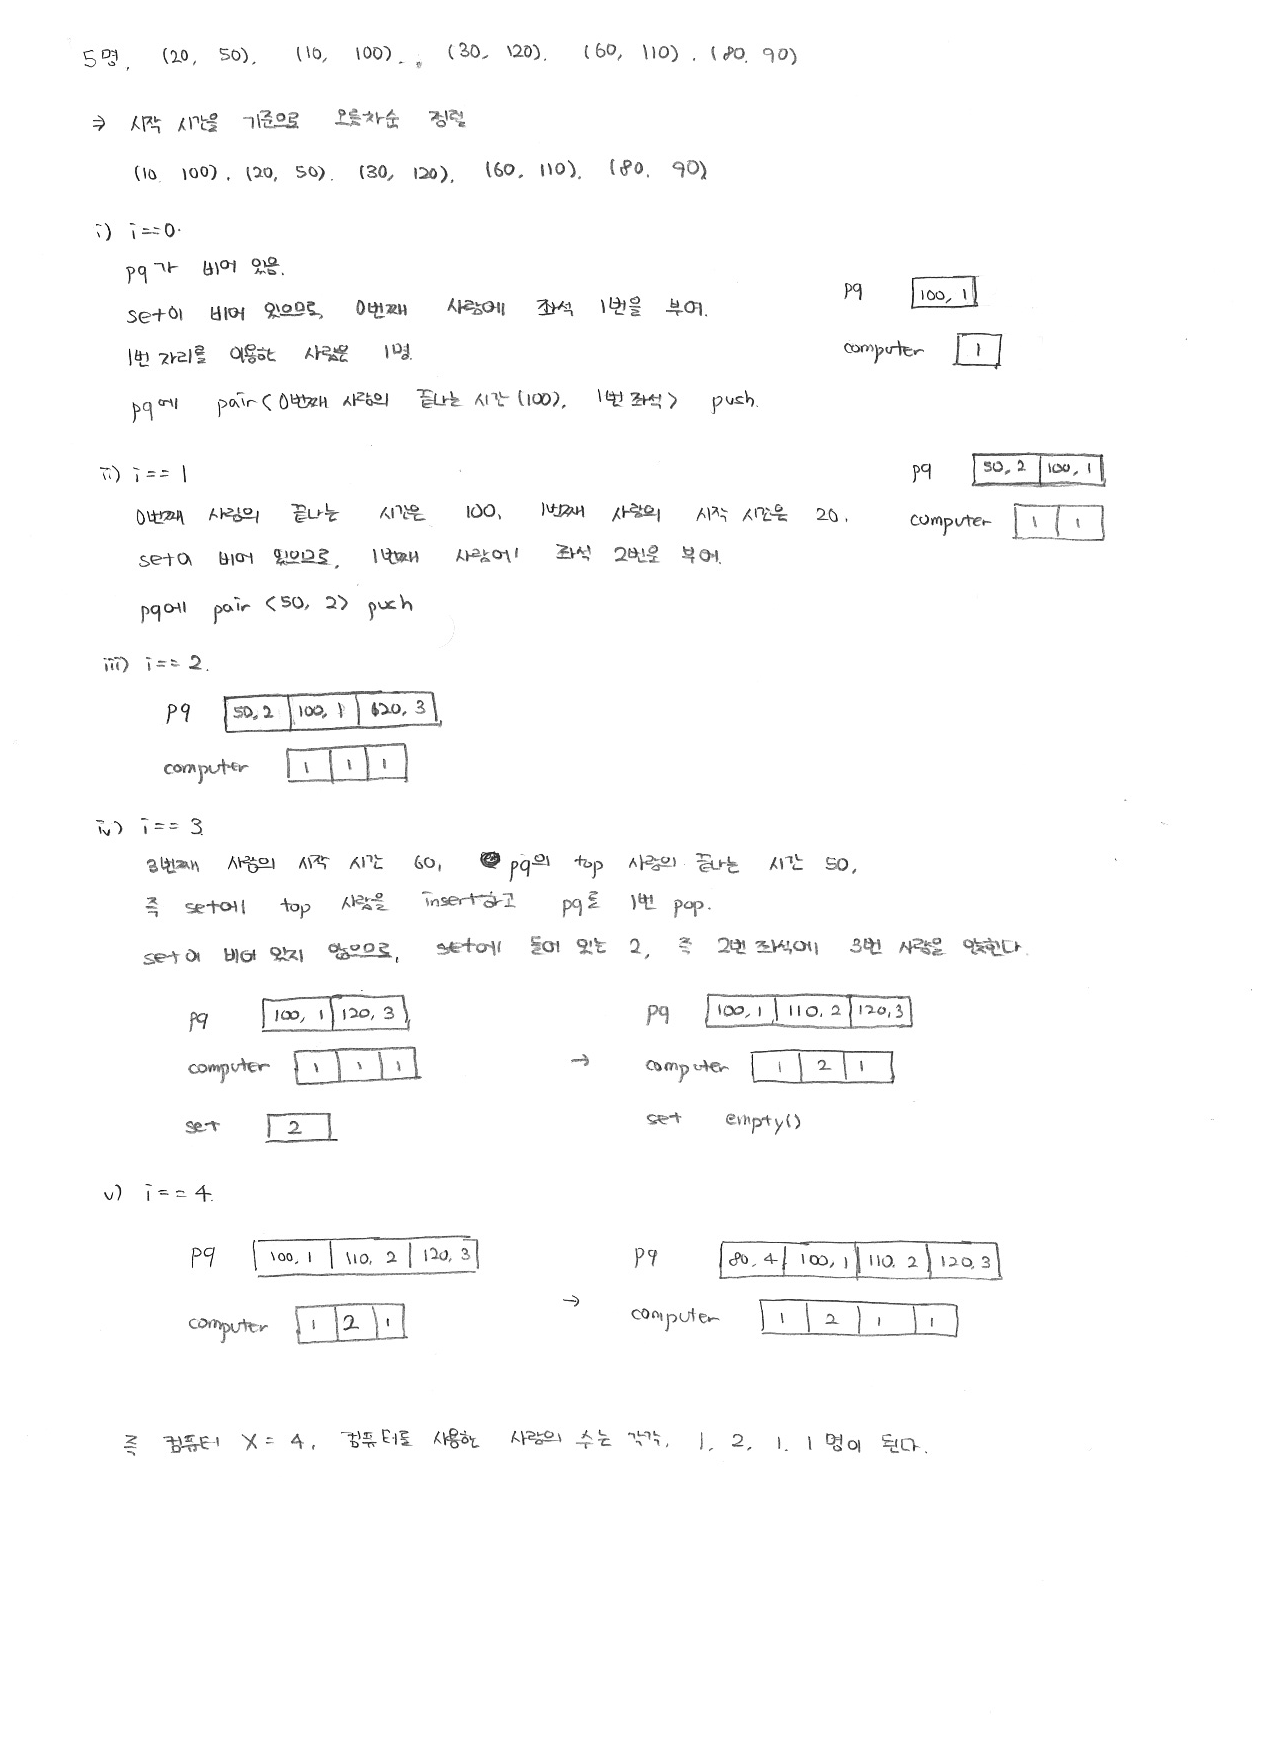 5명, (20, 50), (10, 100), (30, 120), (60, 110), (80, 90)
⇒ 시작 시간을 기준으로 오름차순 정렬
(10, 100), (20, 50), (30, 120), (60, 110), (80, 90)
i) i==0.
pq가 비어 있음.
set이 비어 있으므로, 0번째 사람에 좌석 1번을 부여.
1번 자리를 이용한 사람은 1명
pq에 pair<0번째 사람의 끝나는 시간(100), 1번 좌석> push.
pq 100, 1
computer 1
ii) i==1
0번째 사람의 끝나는 시간은 100, 1번째 사람의 시작 시간은 20.
set이 비어 있으므로, 1번째 사람에 좌석 2번을 부여.
pq에 pair <50, 2> push
pq 50, 2 100, 1
computer 1 1
iii) i==2.
pq 50, 2 100, 1 120, 3
computer 1 1 1
iv) i==3
3번째 사람의 시작 시간 60, pq의 top 사람의 끝나는 시간 50,
즉 set에 top 사람을 insert하고 pq를 1번 pop.
set이 비어 있지 않으므로, set에 들어 있는 2, 즉 2번 좌석에 3번 사람을 앉힌다.
pq 100, 1 120, 3 pq 100, 1 110, 2 120, 3
computer 1 1 1 → computer 1 2 1
set 2 set empty()
v) i==4.
pq 100, 1 110, 2 120, 3 pq 80, 4 100, 1 110, 2 120, 3
computer 1 2 1 → computer 1 2 1 1
즉 컴퓨터 X=4, 컴퓨터를 사용한 사람의 수는 각각, 1, 2, 1, 1명이 된다.